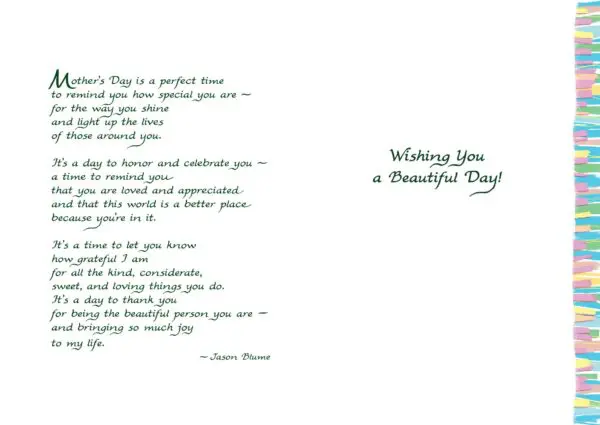 Mother's Day is a perfect time
to remind you how special you are ~
for the way you shine
and light up the lives
of those around you.
It's a day to honor and celebrate you ~
a time to remind you
that you are loved and appreciated
and that this world is a better place
because you're in it.
It's a time to let you know
how grateful I am
for all the kind, considerate,
sweet, and loving things you do.
It's a day to thank you
for being the beautiful person you are ~
and bringing so much joy
to my life.
~ Jason Blume
Wishing You
a Beautiful Day!